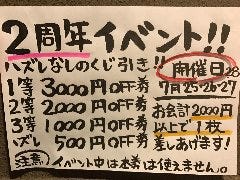 2周年イベント!!
ハズレなしのくじ引き!!
1等 3000円OFF券
2等 2000円OFF券
3等 1000円OFF券
ハズレ 500円OFF券
開催日
7月25・26・27
28
お会計2000円
以上で1枚
差しあげます!
注意 イベント中は本券は使えません。